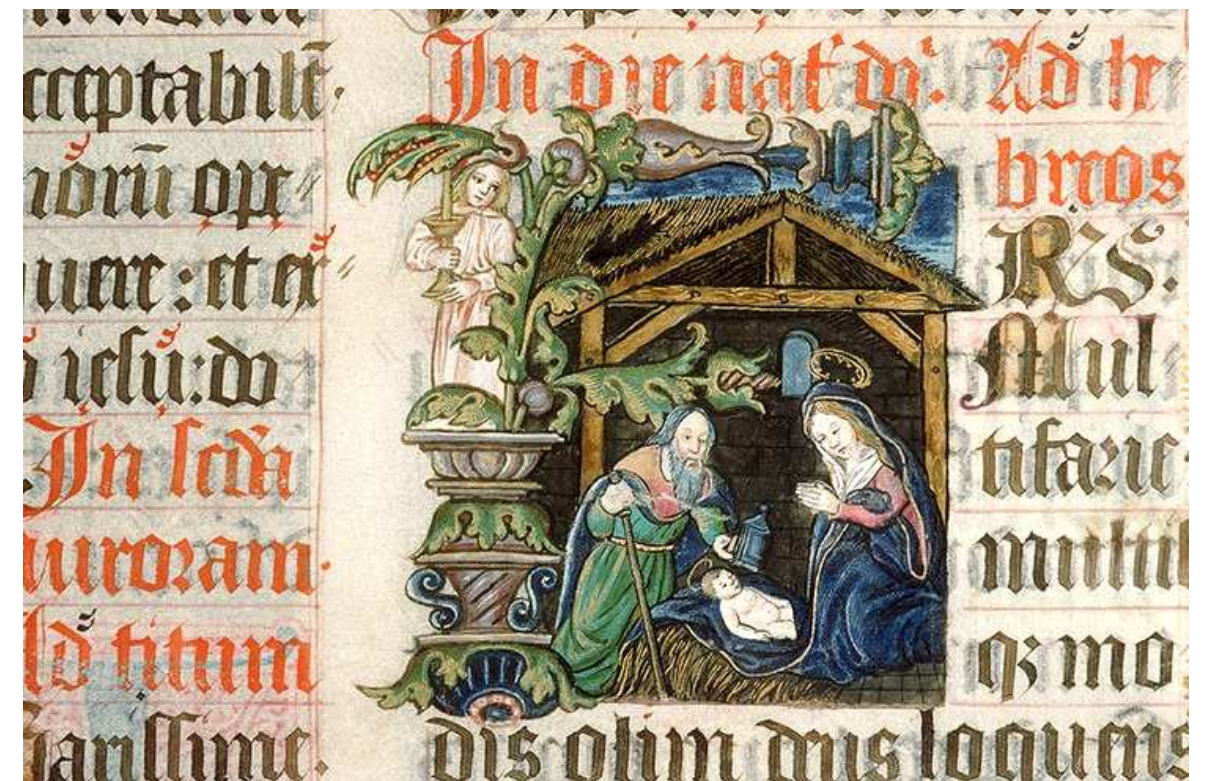 acceptabilē
norū ope
uere : et ex
iesū: do
In scđa
auroram.
Ad titum
Karissime.
In die nat dn̄i. Ad he
breos
RS.
Mul
tifarie
multis
qꝫ mo
dis olim dn̄s loquens